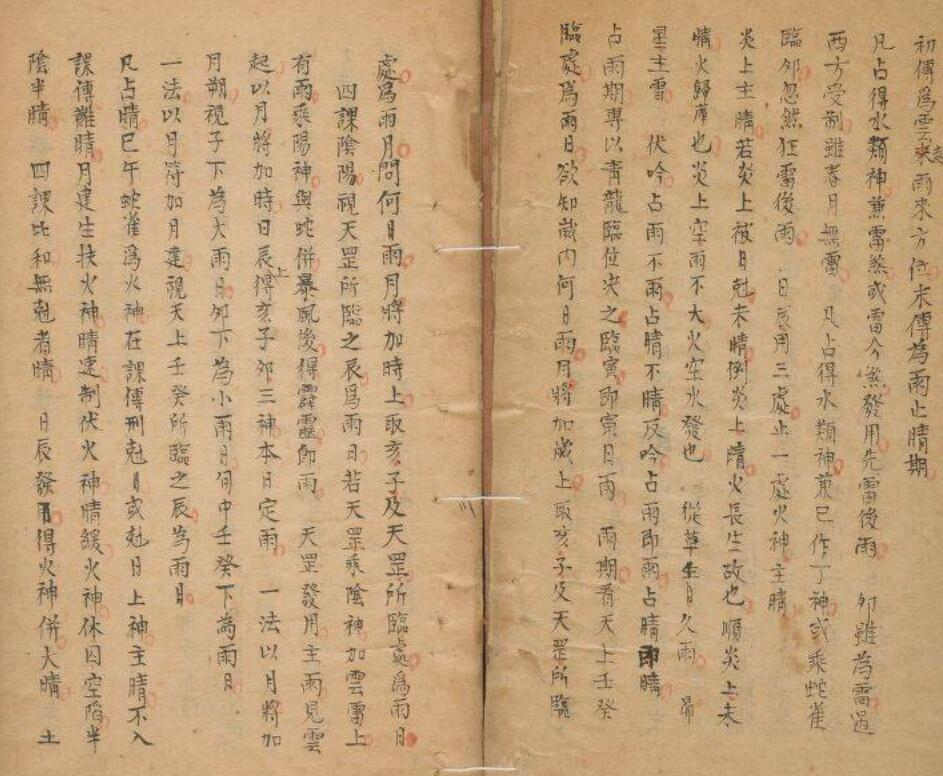 初傳為雲來雨來方位末傳為雨止晴期
凡占得水類神兼雷煞或雷公煞發用先雷後雨　卯雖為雷遇
酉方受制雖春月無雷　凡占得水類神兼巳作丁神或乘蛇雀
臨卯忽然狂雷後雨　日辰用三處止一處火神主晴
炎上主晴若炎上被日尅未晴倒炎上晴火長生故也順炎上未
晴火歸庫也炎上空雨不大火空水發也　從革生日久雨　昴
星主雪　伏吟占雨不雨占晴不晴反吟占雨即雨占晴即晴
占雨期專以青龍臨位决之臨寅即寅日雨　雨期看天上壬癸
臨處為雨日欲知歲內何日雨月將加歲上取亥子及天罡所臨
處為雨月問何日雨月將加時上取亥子及天罡所臨處為雨日
四課陰陽視天罡所臨之辰為雨日若天罡乘陰神加雲雷上
有雨乘陽神與蛇併暴風後得霹靂即雨　天罡發用主雨見雲
起以月將加時日辰上得亥子卯三神本日定雨　一法以月將加
月朔視子下為大雨日卯下為小雨日旬中壬癸下為雨日
一法以月符加月建視天上壬癸所臨之辰為雨日
凡占晴巳午蛇雀為火神在課傳刑尅日或尅日上神主晴不入
課傳難晴月建生扶火神晴速制伏火神晴緩火神休囚空陷半
陰半晴　四課比和無尅者晴　日辰發用得火神併大晴　土